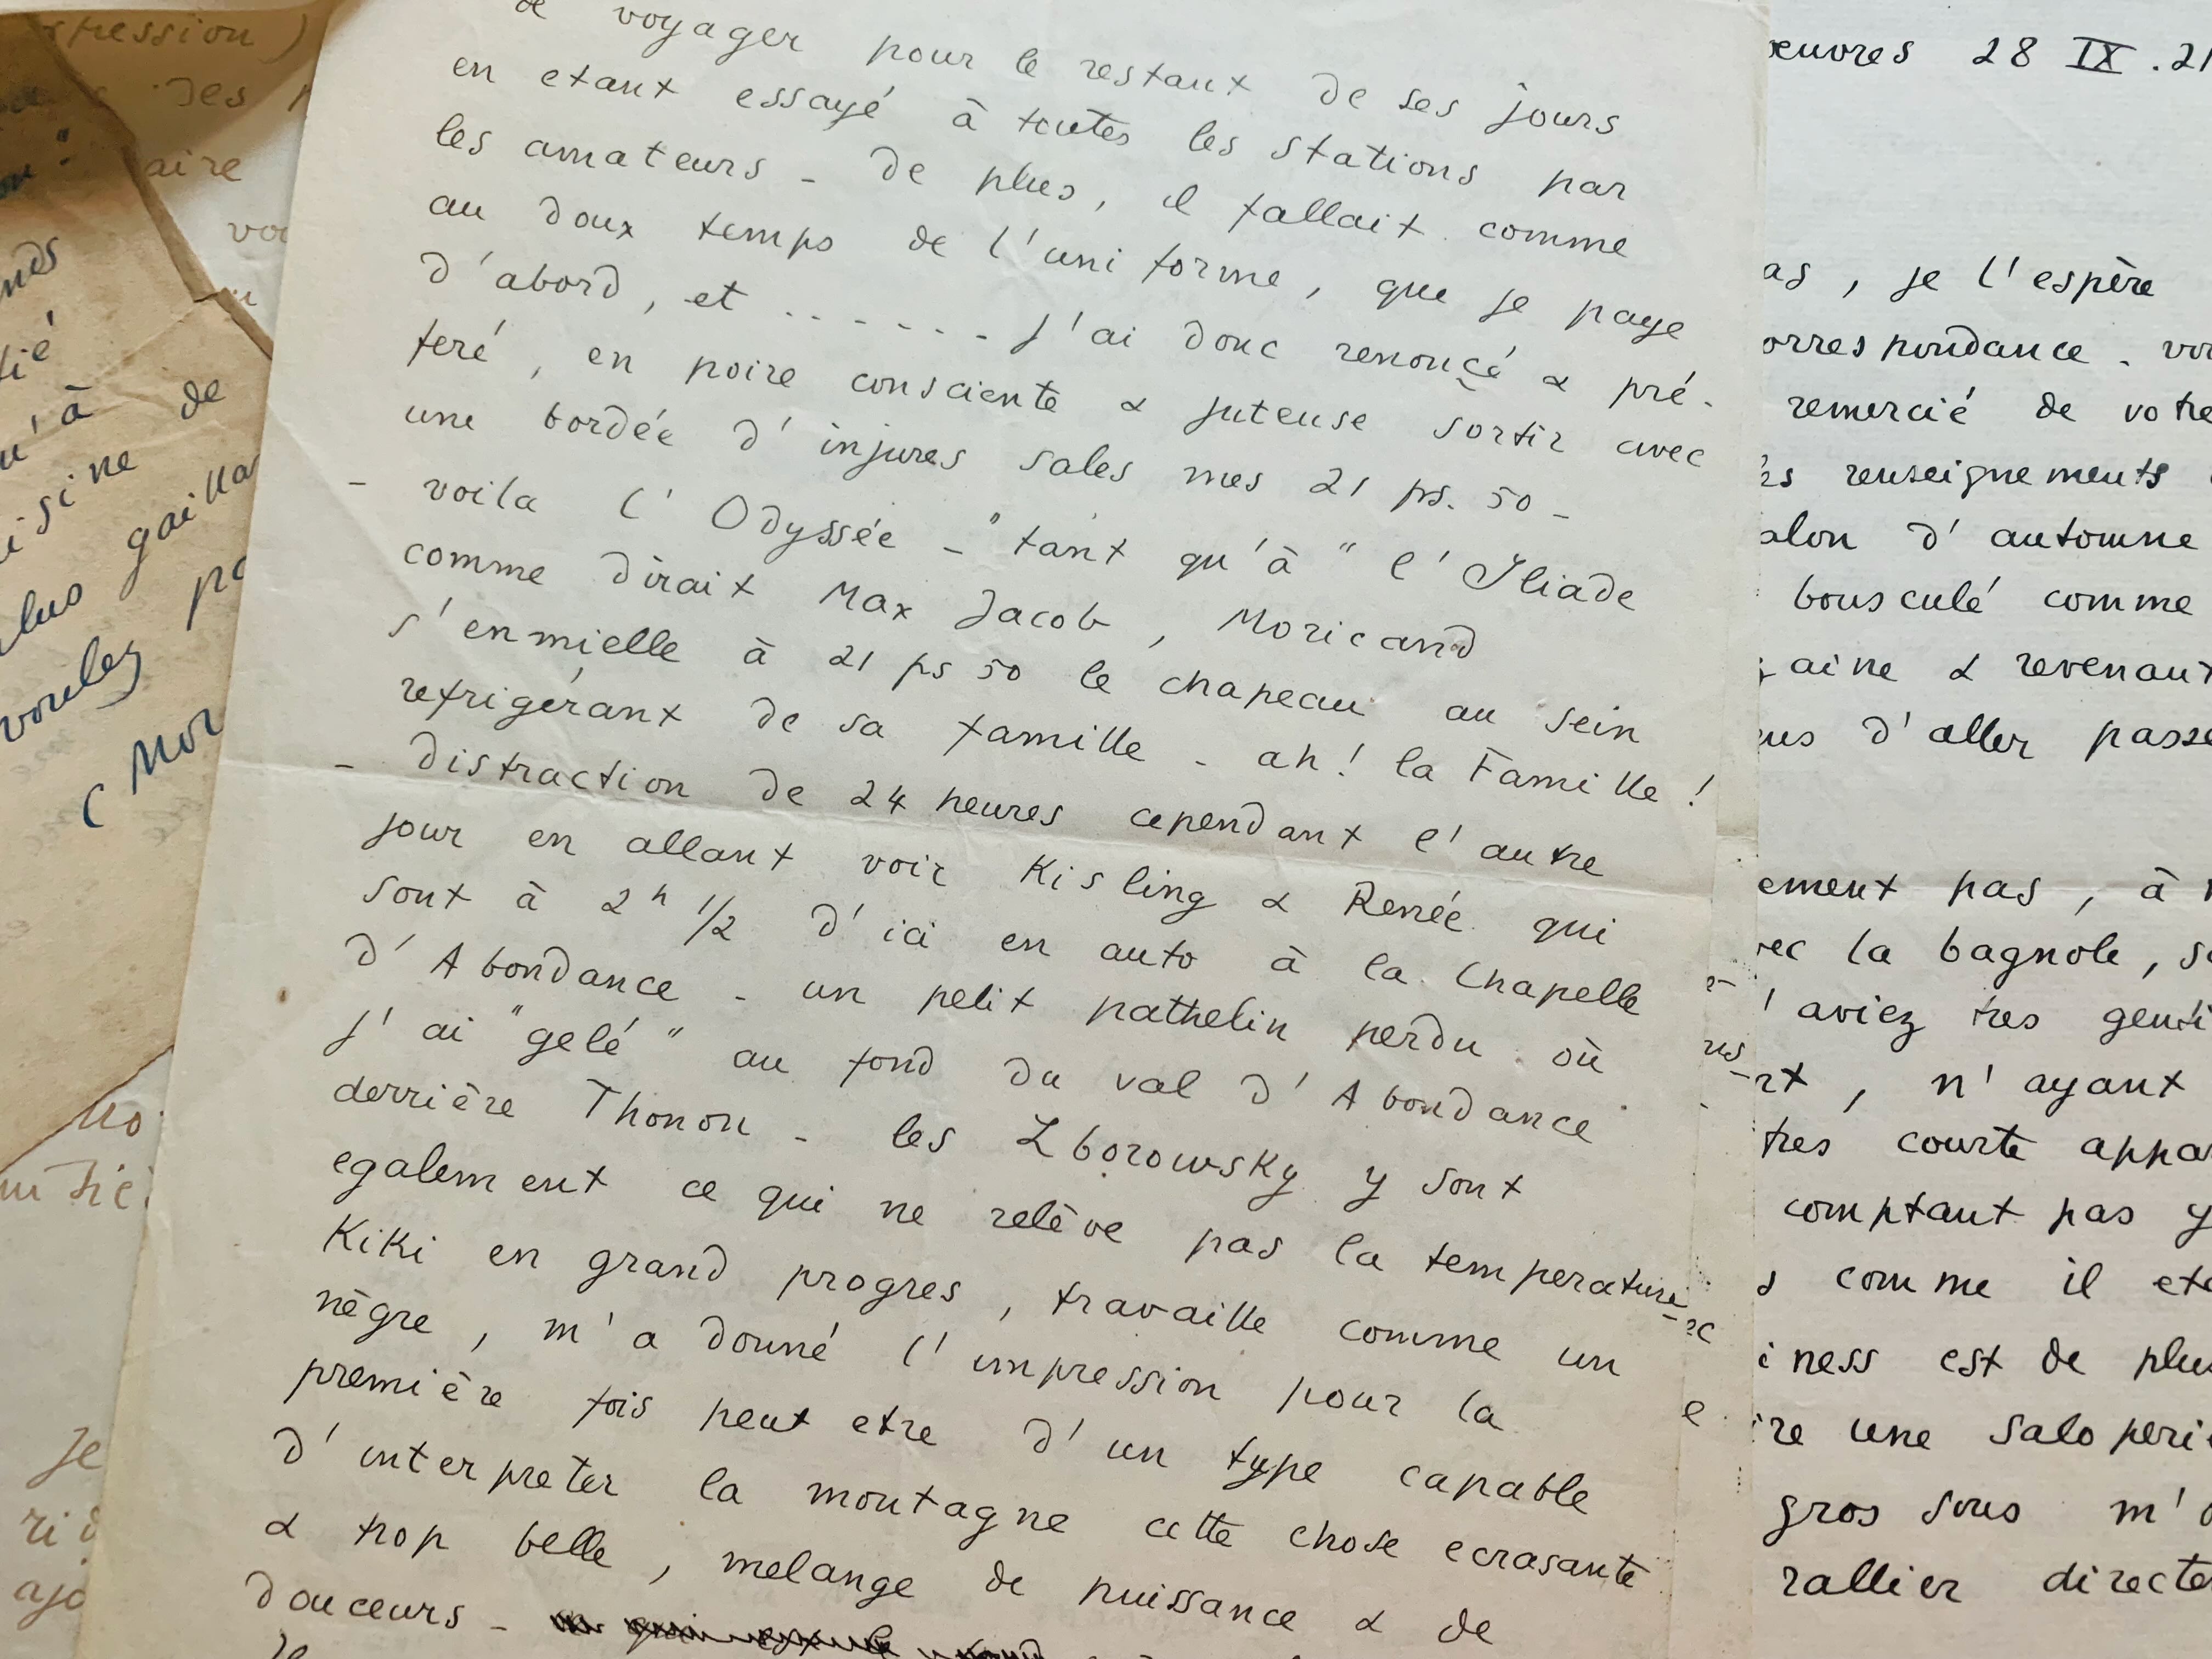 de voyager pour le restant de ses jours
en etant essayé à toutes les stations par
les amateurs - de plus, il fallait comme
au doux temps de l'uniforme, que je paye
d'abord, et ....... j'ai donc renoncé & pré-
feré, en poire consciente & juteuse sortir avec
une bordée d'injures sales mes 21 ps. 50 -
- voila l'Odyssée - "tant qu'à" l'Iliade
comme dirait Max Jacob, Moricand
s'enmielle à 21 ps 50 le chapeau au sein
refrigérant de sa famille - ah! la Famille!
- distraction de 24 heures cependant l'autre
jour en allant voir Kisling & Renée qui
sont à 2h 1/2 d'ici en auto à la Chapelle
d'Abondance - un petit pathelin perdu où
j'ai "gelé" au fond du val d'Abondance
derrière Thonon - les Zborowsky y sont
egalement ce qui ne relève pas la temperature
Kiki en grand progres, travaille comme un
nègre, m'a donné l'impression pour la
première fois peut etre d'un type capable
d'interpreter la montagne cette chose ecrasante
& trop belle, melange de puissance & de
douceurs -
pression)
des
aire
de
gaillar
voulez
(Mor
Je
oeuvres 28 IX . 21
as, je l'espère
orrespondance - vou
remercié de votre
es renseignements
alon d'automne
bousculé comme
aine & revenant
us d'aller passe
ement pas, à
ec la bagnole, sa
'aviez tres genti
rt, n'ayant
tres courte appar
comptant pas y
s comme il eta
iness est de plus
re une saloperie
gros sous m'o
rallier directe